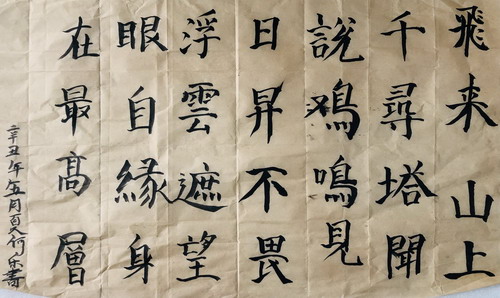 飛来山上
千尋塔聞
說鸡鳴見
日昇不畏
浮雲遮望
眼自緣身
在最高層
辛丑年五月